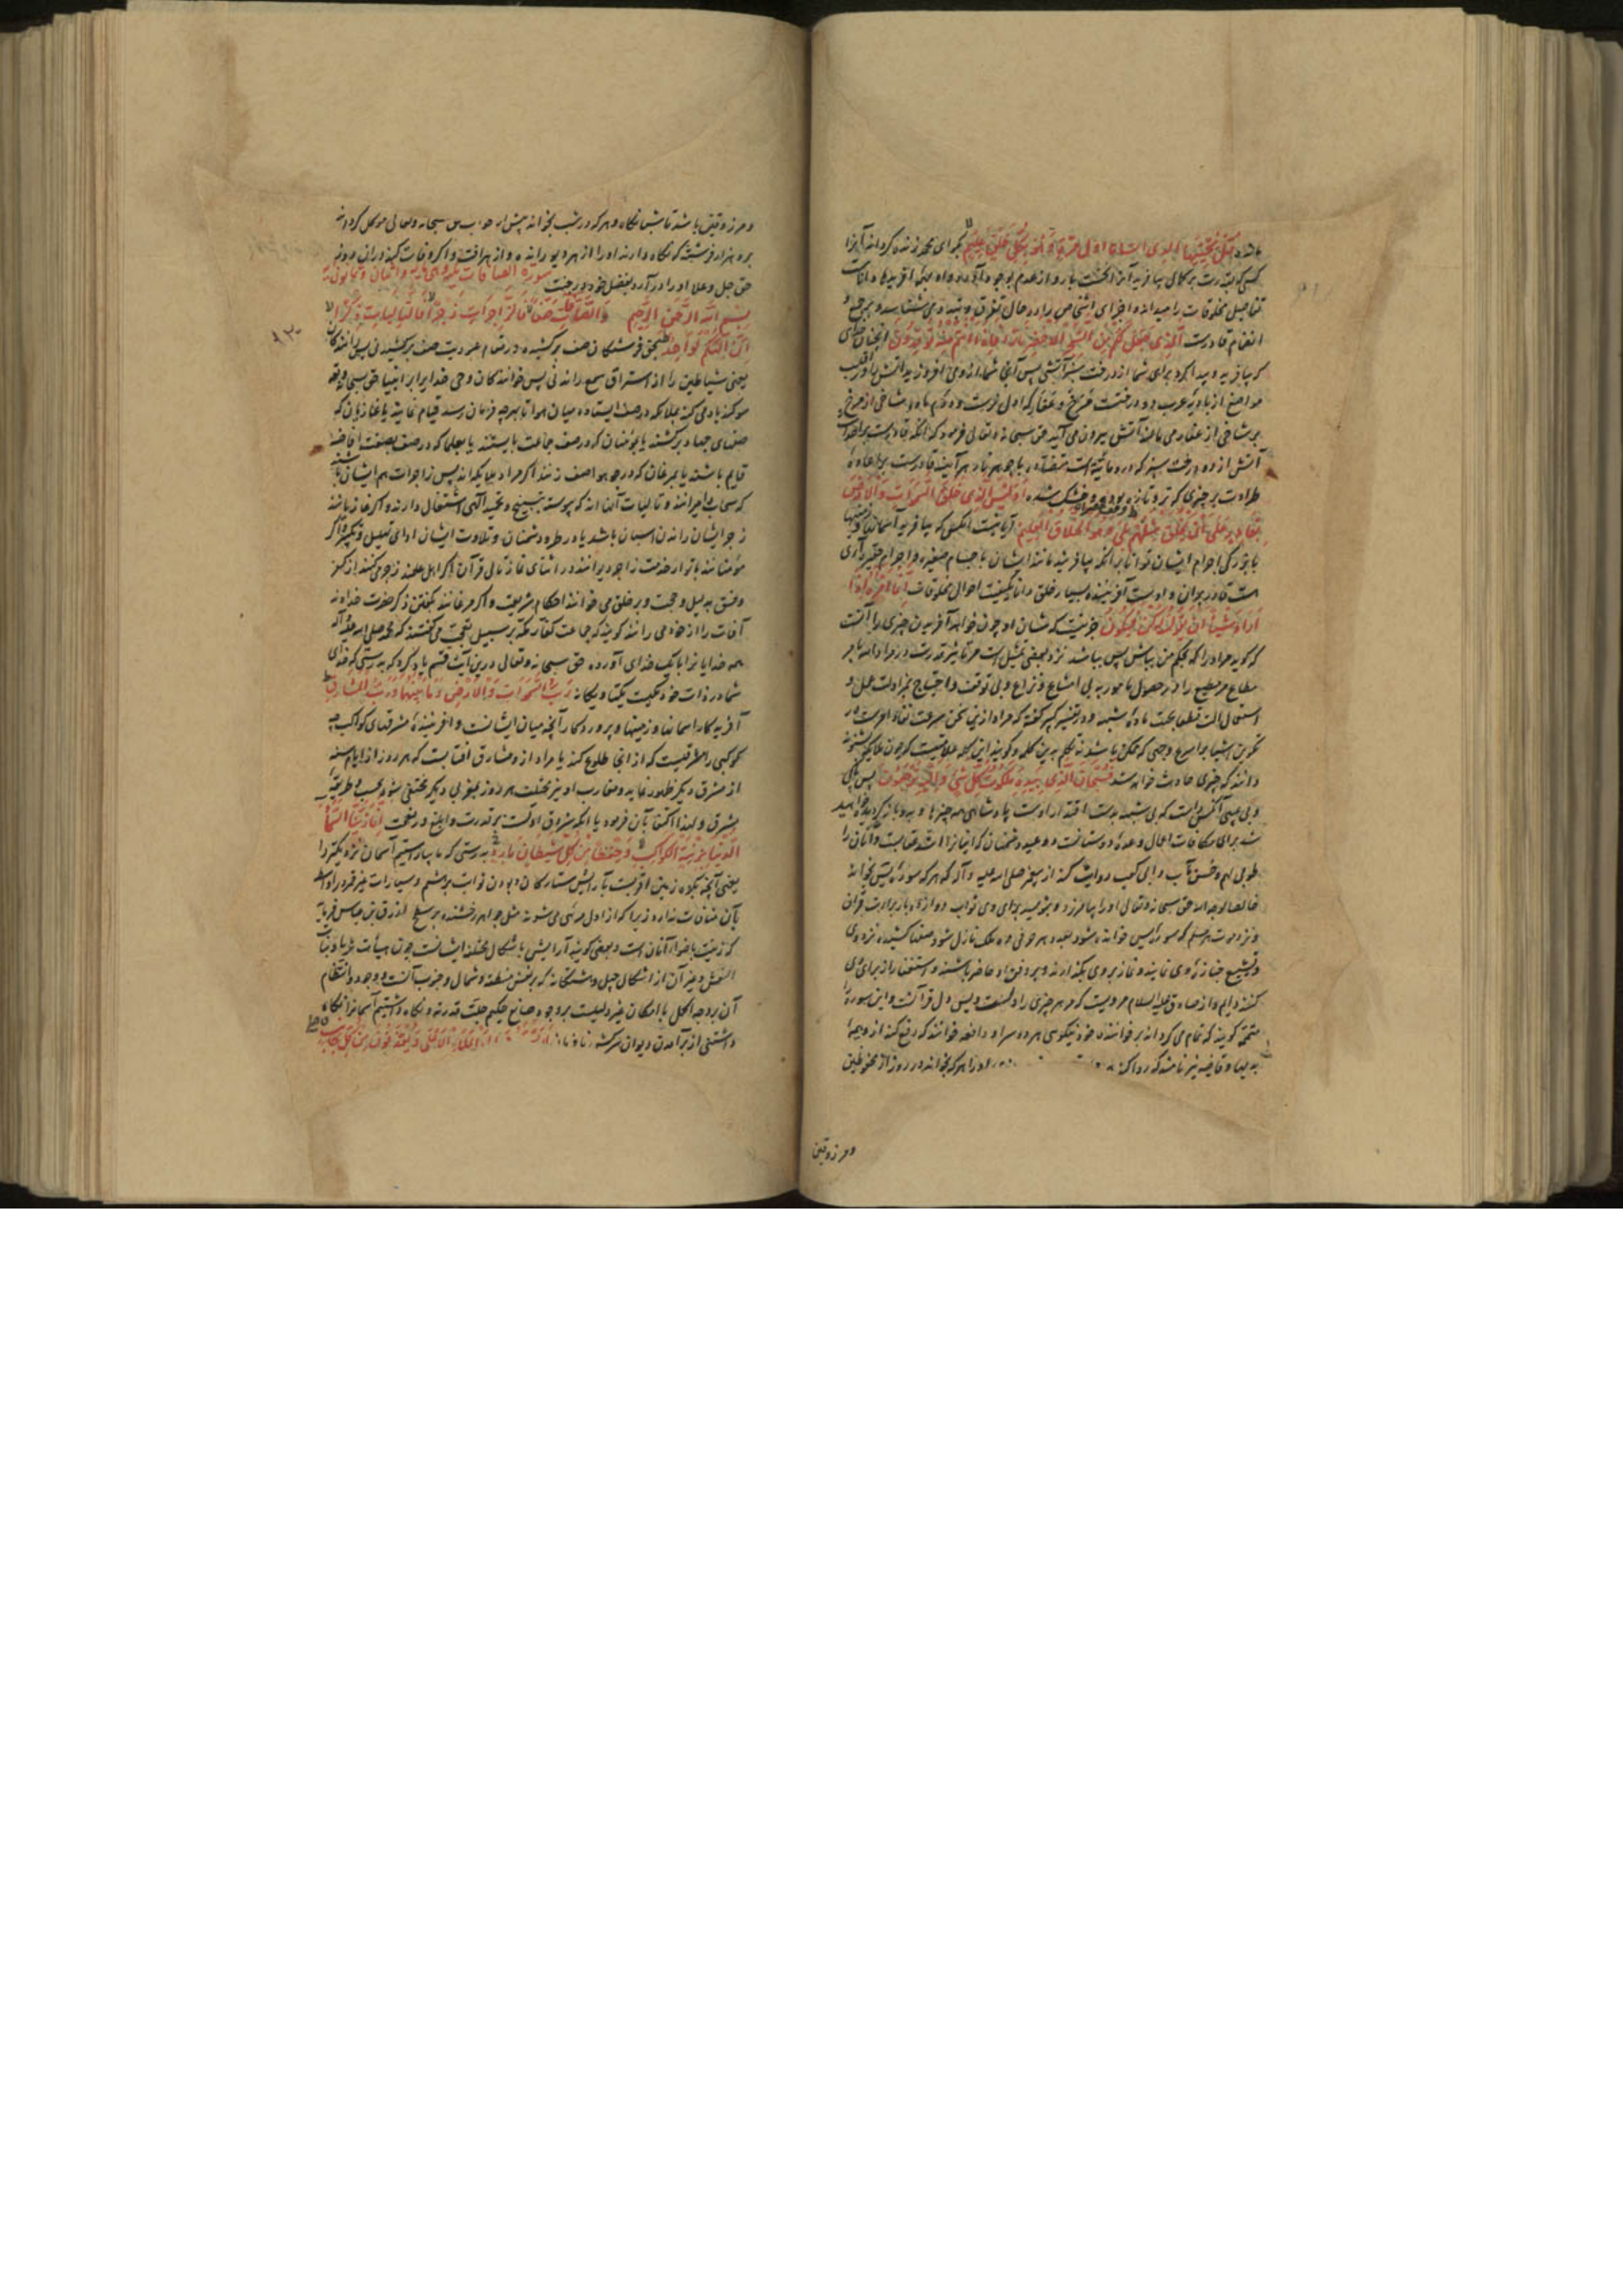 قُلْ يُحْيِيهَا الَّذِي أَنشَأَهَا أَوَّلَ مَرَّةٍ وَهُوَ بِكُلِّ خَلْقٍ عَلِيمٌ بگو ای محمد زنده گرداند آنرا
کسی که بقدرت بر کمال بیافرید آنرا نخست بار و از عدم بوجود آورد
تفاصیل مخلوقات را میداند و اجزای اشخاص را در حال تفرق
انضمام قادرست الَّذِي جَعَلَ لَكُم مِّنَ الشَّجَرِ الْأَخْضَرِ نَارًا فَإِذَا أَنتُم مِّنْهُ تُوقِدُونَ
که بیافرید و پیدا کرد برای شما از درخت سبز آتشی پس آنجا شما از وی می افروزید آتش را
مواضع از بادیه عرب دو درختست مرخ و عفار که اول نرست و دوم ماده شاخی از مرخ
بر شاخی از عفار می مالند آتش بیرون می آید حق سبحانه وتعالی فرمود که آنکه قادرست بر احداث
آتش از درخت سبز که در و مائیه است هر آینه قادرست بر اعاده
طراوت بر چیزی که تر و تازه بوده و خشک شده أَوَلَيْسَ الَّذِي خَلَقَ السَّمَوَاتِ وَالْأَرْضَ
بِقَادِرٍ عَلَى أَن يَخْلُقَ مِثْلَهُم بَلَى وَهُوَ الْخَلَّاقُ الْعَلِيمُ آیا نیست آنکس که بیافرید آسمانها و زمینها
با بزرگی اجرام ایشان توانا بر آنکه بیافریند مانند ایشان با اجسام صغیره و اجرام حقیر آری
هست قادر بر آن و اوست آفریننده بسیار خلق دانا بکیفیت احوال مخلوقات إِنَّمَا أَمْرُهُ إِذَا
أَرَادَ شَيْئًا أَن يَقُولَ لَهُ كُن فَيَكُونُ جز این نیست که شان او چون خواهد آفریدن چیزی را آنست
که گوید مراد را که بحکم من بباش پس بباشد نزد بعضی تمثیل است مر تاثیر قدرت
مطاع مر مطیع را در حصول مامور به بی امتناع و نزاع و بی توقف و احتیاج بمزاولت عمل و
استعمال آلت قطعا بجهت ماده شبهه و در تفسیر کبیر گفته که مراد ازین سخن سرعت نفاذ امرست در
تکوین اشیا بر اسرع وجهی که ممکن باشد نه تکلم به این کلمه و گویند این کلمه علامتیست که چون ملائکه شنوند
دانند که چیزی حادث خواهد شد فَسُبْحَانَ الَّذِي بِيَدِهِ مَلَكُوتُ كُلِّ شَيْءٍ وَإِلَيْهِ تُرْجَعُونَ پس پاکی
و بی عیبی آنکس راست که بی شبهه بدست اقتدار اوست پادشاهی همه چیزها و بدو باز گردیده خواهید
شد برای مکافات اعمال وعده دوستانست و وعید دشمنان که اینانرا اشد عقابست و آنان را
طوبی لهم وحسن مآب و ابی کعب روایت کند از پیغمبر صلی الله علیه وآله که هر که سوره یس بخواند
خالصا لوجه الله حق سبحانه وتعالی او را بیامرزد و بنویسد برای وی ثواب دوازده بار قراءت قرآن
و نزد هر مسلم که سوره یس خوانده شود بعدد هر حرفی ده ملک نازل شود صفها کشیده نزد وی
و تشییع جنازه وی نمایند و نماز بر وی بگذارند و بر دفن او حاضر باشند و استغفار از برای وی
کنند و امام از صادق علیه السلام مرویست که هر چیزی را دلست و یس دل قرآنست و این سوره را
متممه گویند که تمام می گرداند بر خواننده خود نیکوئی هر دو سرا و دافعه خوانند که رفع کند از وی همه
بدیها و قاضیه نیز نامند که روا کند ... او را هر که بخواند در روز از محفوظین
ومرزوقین
ومرزوقین باشد تا شبانگاه و هر که در شب بخواند پیش از خواب حق سبحانه وتعالی موکل گرداند
برو هزار فرشته که نگاه دارند او را از هر دیو رانده و از هر آفت و اگر وفات کند در آن روز
حق جل وعلا او را در آرد بفضل خود در جنت سورة الصافات مکیة وهی مائة واثنان وثمانون آیة
بِسْمِ اللَّهِ الرَّحْمَنِ الرَّحِيمِ وَالصَّافَّاتِ صَفًّا فَالزَّاجِرَاتِ زَجْرًا فَالتَّالِيَاتِ ذِكْرًا
إِنَّ إِلَهَكُمْ لَوَاحِدٌ بحق فرشتگان صف برکشیده در مقام عبودیت صف برکشیدنی پس رانندگان
یعنی شیاطین را از استراق سمع راندنی پس خوانندگان وحی خدا را بر انبیا حق سبحانه وتعالی
سوگند یاد می کند بملائکه در صف ایستاده میان هوا تا بهر چه فرمان رسد قیام نمایند یا غازیان که
صفهای جهاد برکشند یا بمؤمنان که در صف جماعت بایستند یا بعلما که در صف
قایم باشند یا بمرغان که در جو هوا صف زنند اگر مراد ملائکه اند پس زاجرات هم ایشان باشند
که سحاب را میرانند و تالیات آنان اند که پیوسته بتسبیح و تحمید الهی اشتغال دارند و اگر غازیانند
زجر ایشان راندن اسبان باشد یا در طرد دشمنان و تلاوت ایشان ادای تهلیل و تکبیر و اگر
مؤمنانند بانوار خدمت زاجر دیوانند و در اثنای نماز تالی قرآن اگر اهل علمند زجر می کنند از کفر
وفسق بدلیل و حجت و بر خلق می خوانند احکام شریعت و اگر مرغانند بگفتن ذکر حضرت خداوند
آفات را از خود می رانند گویند که جماعت کفار مکه بر سبیل تعجب می گفتند که محمد صلی الله علیه وآله
همه خدایانرا با یک خدای آورده حق سبحانه وتعالی درین آیت قسم یاد کرد که بدرستی که خدای
شما در ذات خود یکیست یکتا و یگانه رَبُّ السَّمَوَاتِ وَالْأَرْضِ وَمَا بَيْنَهُمَا وَرَبُّ الْمَشَارِقِ
آفریدگار آسمانها و زمینها و پروردگار آنچه میان ایشانست و آفریننده مشرقهای کواکب چه هر
کوکبی را مشرقیست که از آنجا طلوع کند یا مراد از مشارق آفتابست که هر روز از ایام سنه
از مشرق دیگر ظهور نماید و مغارب او نیز مختلف هر روز بمغربی دیگر مختفی شود
مشرق و لهذا اکتفا بآن فرموده یا آنکه شروق ادلست بر قدرت و ابلغ در نعمت إِنَّا زَيَّنَّا السَّمَاءَ
الدُّنْيَا بِزِينَةٍ الْكَوَاكِبِ وَحِفْظًا مِّن كُلِّ شَيْطَانٍ مَّارِدٍ بدرستی که ما بیاراستیم آسمان نزدیکتر را
یعنی آنچه بکره زمین اقربست بآرایش ستارگان و بودن ثوابت بر هشتم و سیارات غیر قمر در اوساط
بآن منافات ندارد زیرا که از اول مرئی می شوند مثل جواهر درخشنده بر سطح ازرق ابن عباس فرماید
که زینت باضواء آنان است و بعضی گویند آرایش باشکال مختلفه ایشانست چون هیأت ثریا و بنات
النعش وغیر آن از اشکال چهل و هشتگانه که بر نفس منطقه و شمال و جنوب آنست و وجود و انتظام
آن بر وجه اکمل با امکان غیر دلیلست بر وجود صانع حکیم جلت قدرته و نگاه داشتیم آسمانرا نگاه
داشتنی از بر آمدن دیوان سرکش نافرمان لَا يَسَّمَّعُونَ إِلَى الْمَلَإِ الْأَعْلَى وَيُقْذَفُونَ مِن كُلِّ جَانِبٍ